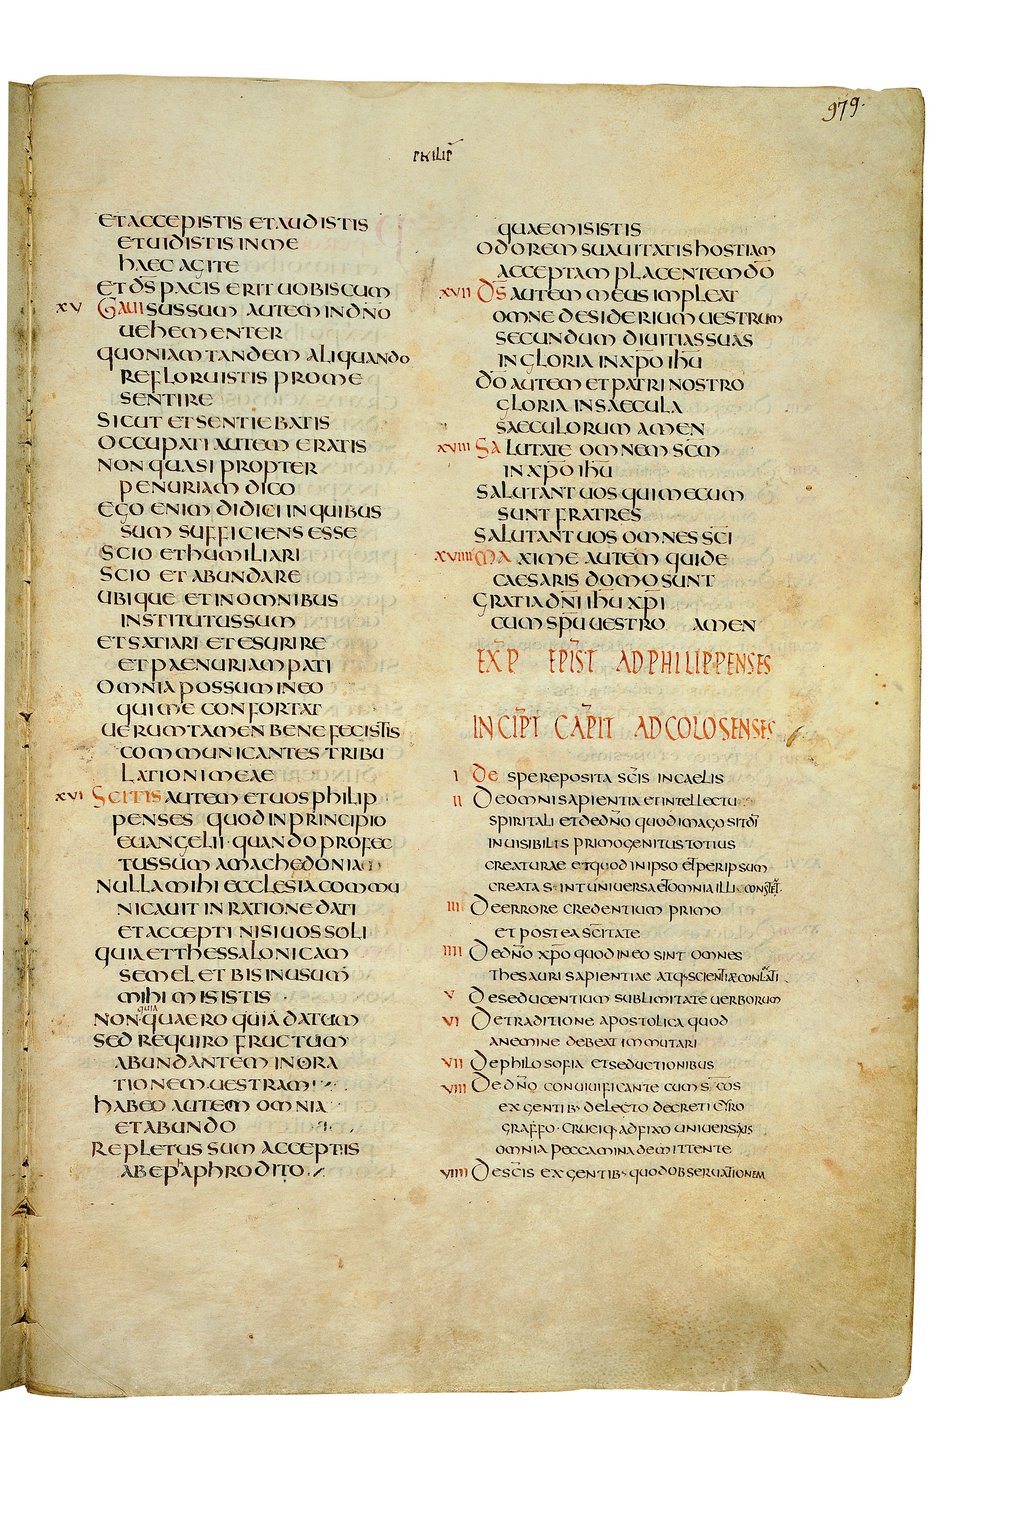 979.
PHILIP̅
ET ACCEPISTIS ET AUDISTIS
ET UIDISTIS IN ME
HAEC AGITE
ET D̅S̅ PACIS ERIT UOBISCUM
XV GAUISUS SUM AUTEM IN DN̅O
UEHEMENTER
QUONIAM TANDEM ALIQUANDO
REFLORUISTIS PRO ME
SENTIRE
SICUT ET SENTIEBATIS
OCCUPATI AUTEM ERATIS
NON QUASI PROPTER
PENURIAM DICO
EGO ENIM DIDICI IN QUIBUS
SUM SUFFICIENS ESSE
SCIO ET HUMILIARI
SCIO ET ABUNDARE
UBIQUE ET IN OMNIBUS
INSTITUTUS SUM
ET SATIARI ET ESURIRE
ET PAENURIAM PATI
OMNIA POSSUM IN EO
QUI ME CONFORTAT
UERUMTAMEN BENE FECISTIS
COMMUNICANTES TRIBU
LATIONI MEAE
XVI SCITIS AUTEM ET UOS PHILIP
PENSES QUOD IN PRINCIPIO
EUANGELII · QUANDO PROFEC
TUS SUM A MACHEDONIA
NULLA MIHI ECCLESIA COMMU
NICAUIT IN RATIONE DATI
ET ACCEPTI NISI UOS SOLI
QUIA ET THESSALONICAM
SEMEL ET BIS IN USUM
MIHI MISISTIS
quia
NON QUAERO QUIA DATUM
SED REQUIRO FRUCTUM
ABUNDANTEM IN ORA
TIONEM UESTRAM
HABEO AUTEM OMNIA
ET ABUNDO
REPLETUS SUM ACCEPTIS
AB EPAPHRODITO
QUAE MISISTIS
ODOREM SUAUITATIS HOSTIAM
ACCEPTAM PLACENTEM D̅O̅
XVII D̅S̅ AUTEM MEUS IMPLEAT
OMNE DESIDERIUM UESTRUM
SECUNDUM DIUITIAS SUAS
IN GLORIA IN XP̅O IH̅U
D̅O̅ AUTEM ET PATRI NOSTRO
GLORIA IN SAECULA
SAECULORUM AMEN
XVIII SALUTATE OMNEM SC̅M
IN XP̅O IH̅U
SALUTANT UOS QUI MECUM
SUNT FRATRES
SALUTANT UOS OMNES SC̅I
XVIIII MAXIME AUTEM QUI DE
CAESARIS DOMO SUNT
GRATIA DN̅I IH̅U XP̅I
CUM SPU̅ UESTRO AMEN
EXP̅ EPIST̅ AD PHILIPPENSES
INCIP̅T CAP̅IT AD COLOSENSES
I DE SPE REPOSITA SC̅IS IN CAELIS
II DE OMNI SAPIENTIA ET INTELLECTU
SPIRITALI ET DE DN̅O QUOD IMAGO SIT D̅I
INUISIBILIS PRIMOGENITUS TOTIUS
CREATURAE ET QUOD IN IPSO ET PER IPSUM
CREATA SINT UNIUERSA ET OMNIA ILLI CONSTET
III DE ERRORE CREDENTIUM PRIMO
ET POSTEA SC̅ITATE
IIII DE DN̅O XP̅O QUOD IN EO SINT OMNES
THESAURI SAPIENTIAE ATQ· SCIENTIAE CONLATI
V DE SEDUCENTIUM SUBLIMITATE UERBORUM
VI DE TRADITIONE APOSTOLICA QUOD
A NEMINE DEBEAT IMMUTARI
VII DE PHILOSOFIA ET SEDUCTIONIBUS
VIII DE DN̅O CONUIUIFICANTE CUM S̅ C̅OS
EX GENTIB· DELECTO DECRETI CYRO
GRAFFO · CRUCIQ· ADFIXO UNIUERSIS
OMNIA PECCAMINA DEMITTENTE
VIIII DE SC̅IS EX GENTIB· QUOD OBSERUATIONEM